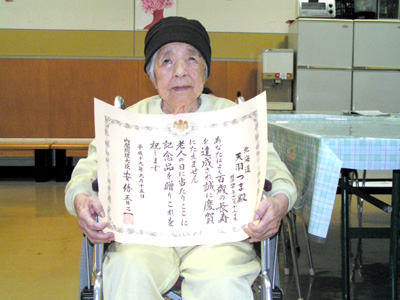 北海道
天羽つま殿
あなたはよく百歳の長寿
を達成され誠に慶賀
にたえません
老人の日に当たりここに
記念品を贈りこれを
祝します
平成十九年九月十五日
内閣総理大臣 安倍晋三